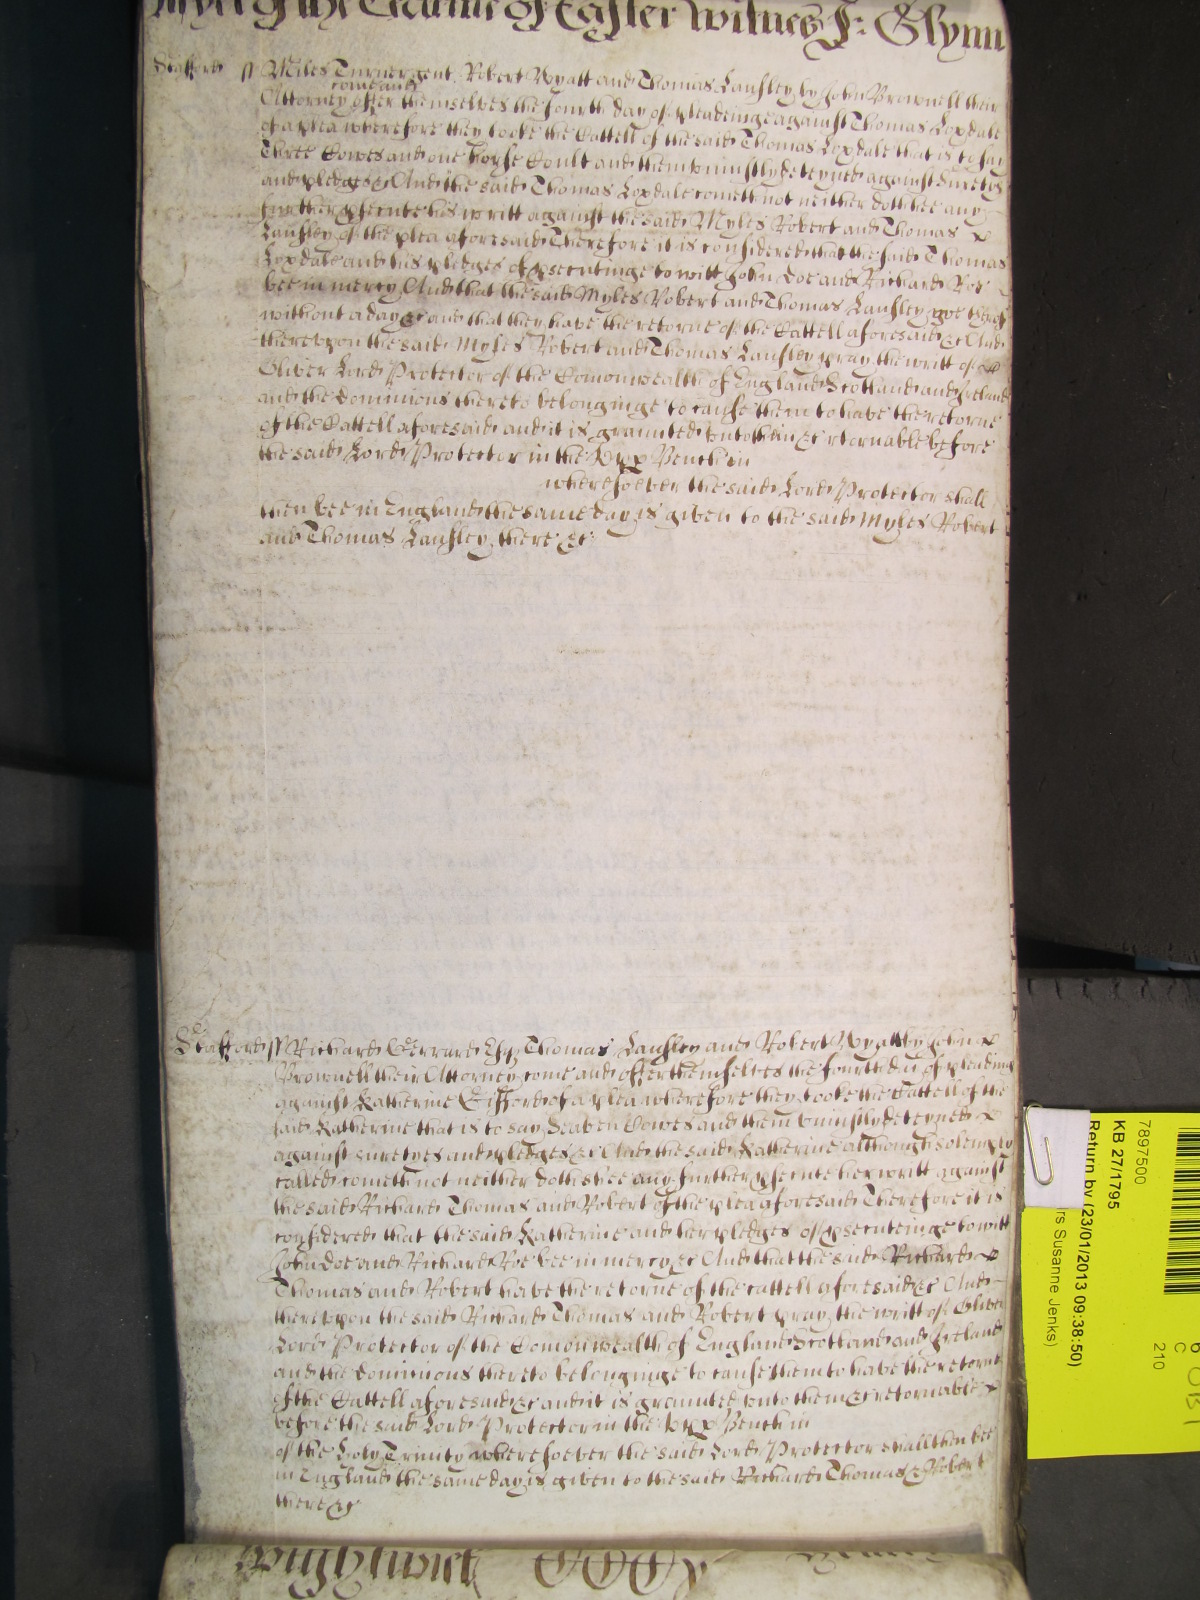 of the Tearme of Easter Witnes J: Glynn
Stafford ss Miles Turner gent Robert Wyatt and Thomas Lansley by John Brownell their
come and
Attorney offer themselves the fourth day of pleadeinge against Thomas Loxdale
of a plea wherefore they tooke the Cattell of the said Thomas Loxdale that is to say
Three Cowes and one horse Coult and them uniustly deteyned against suretyes
and pledges &c And the said Thomas Loxdale cometh not neither doth hee any
further psecute his writt against the said Myles Robert and Thomas
Lansley of the plea aforesaid Therefore it is considered that the said Thomas
Loxdale and his pledges of psecutinge to witt John Doe and Richard Roe
bee in mercy And that the said Myles Robert and Thomas Lansley goe thereof
without a day &c and that they have the retorne of the Cattell aforesaid &c And
thereupon the said Myles Robert and Thomas Lansley pray the writt of
Oliver Lord Protector of the Comonwealth of England Scotland and Ireland
and the Dominions thereto belonginge to cause them to have the retorne
of the Cattell aforesaid and it is graunted unto them &c retornable before
the said Lord Protector in the upp Bench in
wheresoever the said Lord Protector shall
then bee in England the same day is given to the said Myles Robert
and Thomas Lansley there &c
Stafford ss Richard Gerrard Esq Thomas Lansley and Robert Wyatt by John
Brownell their Attorney come and offer themselves the fourth day of pleading
against Katherine Gifford of a plea wherefore they tooke the Cattell of the
said Katherine that is to say Seaven Cowes and them uniustly deteyned
against suretyes and pledges &c And the said Katherine although solemnly
called cometh not neither doth shee any further psecute her writt against
the said Richard Thomas and Robert of the plea aforesaid Therefore it is
considered that the said Katherine and her pledges of psecuteinge to witt
John Doe and Richard Roe bee in mercy &c And that the said Richard
Thomas and Robert have the retorne of the cattell aforesaid &c And
thereupon the said Richard Thomas and Robert pray the writt of Oliver
Lord Protector of the Comonwealth of England Scotland and Ireland
and the dominions thereto belonginge to cause them to have the retorne
of the Cattell aforesaid &c and it is graunted unto them &c retornable
before the said Lord Protector in the upp Bench in
of the Holy Trinity wheresoever the said Lord Protector shall then bee
in England the same day is given to the said Richard Thomas & Robert
there &c
Wightwick
7897500
KB 27/1795
Return by (23/01/2013 09:38:50)
rs Susanne Jenks)
210
C